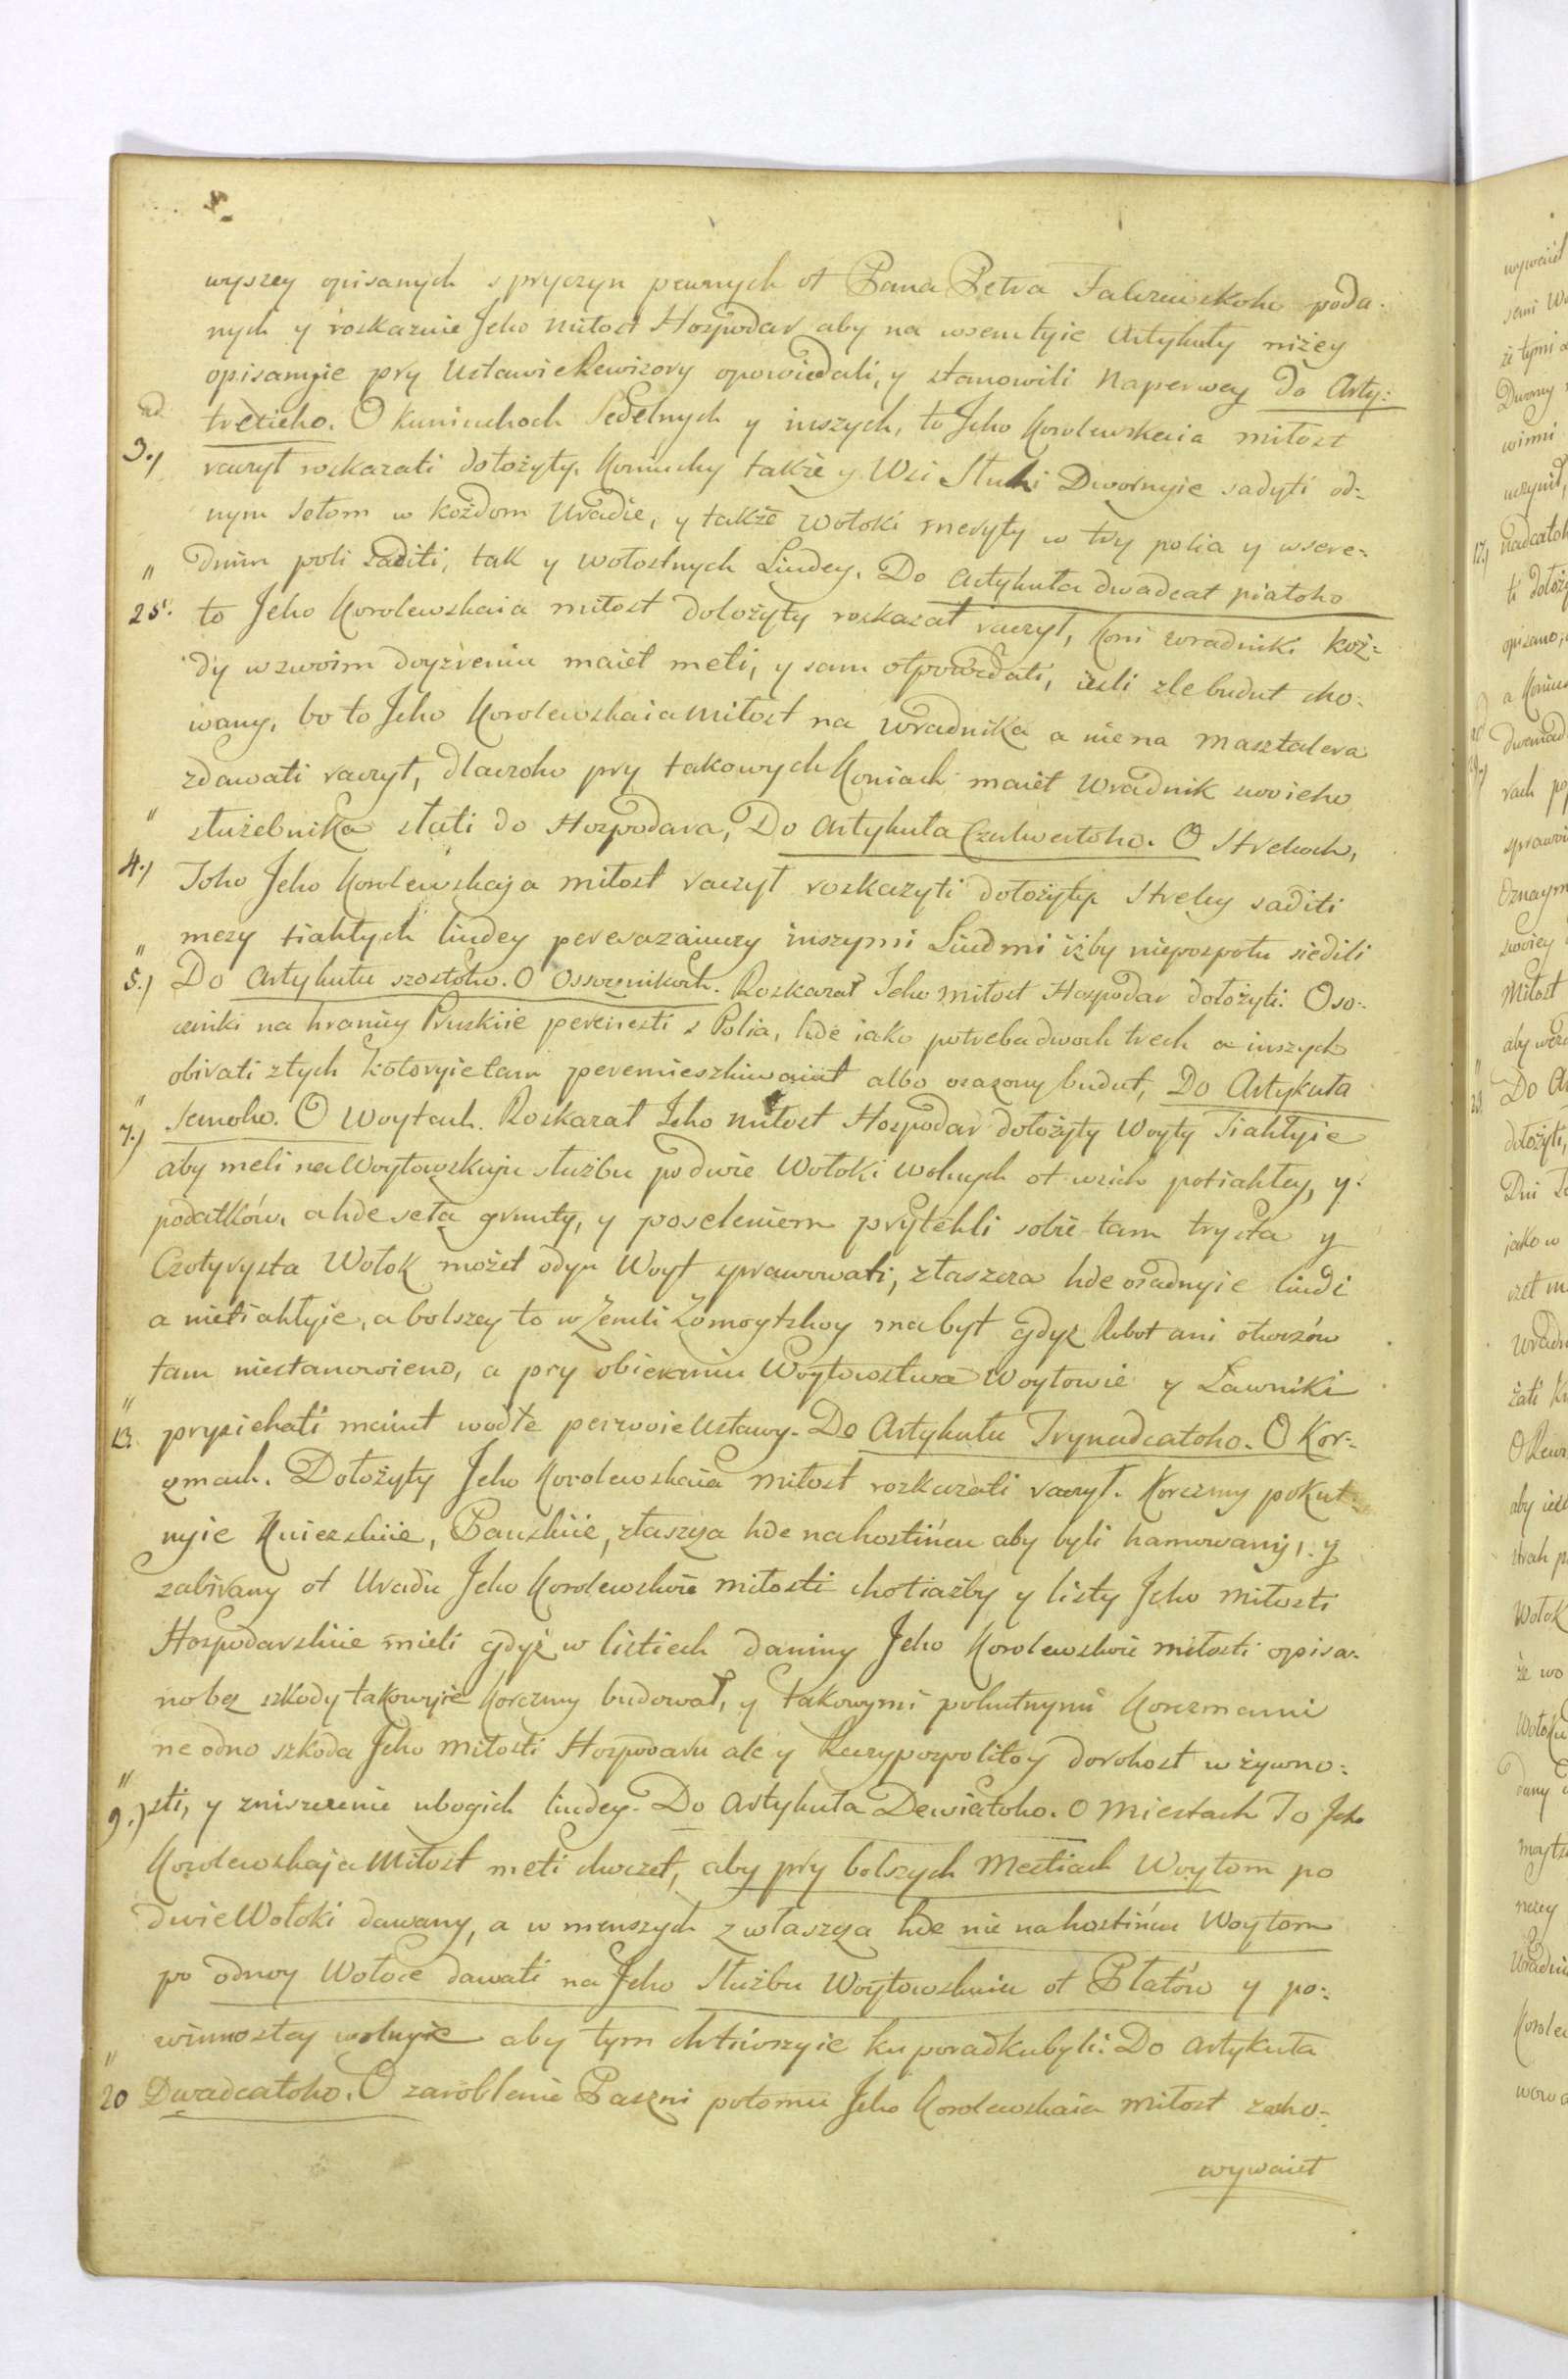 wyszey opisanych s pryczyn pewnych ot Pana Petra Falczewskoho poda-
nych y roskazuie Jeho Miłost Hospodar aby na wsem tyie Artykuły niżey
opisanyie pry Ustawie Rewizory opowiedali, y stanowili Naperwey Do Arty:
ad tretieho. O Kuniuchoch Sedelnych y inszych, to Jeho Korolewskaia miłost
3.) raczył roskazati dołożyty. Koniuchy także y Wsi Sluhi Dwornyie sadyti od:
nym sełom w kożdom Uradie, y także Wołoki meryty w try polia y wsere:
" dnim poli saditi, tak y wołostnych Liudey. Do Artykuła dwadcat piatoho
25. to Jeho Korolewskaia miłost dołożyty roskazał raczył, Koni wradniki koż:
dy w swoim doyzreniu maiet meti, y sam otpowiedati, iesli zle budut cho:
wany, bo to Jeho Korolewskaia Miłost na Wradnika a nie na Masztalera
zdawati raczyt, dlaczoho pry takowych Koniach maiet Wradnik swoieho
" służebnika słati do Hospodara, Do Artykuła Czetwertoho. O Strelcoch,
4.) Toho Jeho Korolewskaja miłost raczył roskazyti dołożyty Strelcy saditi
mezy tiahłych liudey peresazaiuczy inszymi Liudmi iżby niepospołu siedili
" 5.) Do Artykułu szostoho. O Ossocznikoch. Roskazał Jeho Miłost Hospodar dołożyti. Oso:
czniki na hranicy Pruskiie perenesti s Polia, hde iako potreba dwoch trech a inszych
obirati z tych kotoryie tam peremieszkiwaiut albo osazony budut, Do Artykuła
" 7.) Semoho. O Woytach. Roskazał Jeho Miłost Hospodar dołożyty Woyty Tiahłyie
aby meli na Woytowskuju służbu po dwie Wołoki wolnych ot wsich potiahłey, y
podatków, a hde seła grunty, y poseleniem prylehli sobie tam trysta y
Czotyrysta Wołok możet odyn Woyt sprawowati, złaszcza hde osadnyie liudi
a nietiahłyje, a bolszey to w Zemli Zomoytskoy ma byt gdyż Robot ani otwozów
tam niestanowieno, a pry obieraniu Woytowstwa Woytowie y Ławniki
" 13. prysiehati maiut wodłe perwoie Ustawy. Do Artykułu Trynadcatoho. O Kor-
czmach. Dołożyty Jeho Korolewskaia Miłost roskazati raczył. Korczmy pokut
nyie Kniezskiie, Panskiie, złaszcza hde na hostińcu aby byli hamowany, y
zabirany ot Uradu Jeho Korolewskoie miłosti chotiażby y listy Jeho Miłosti
Hospodarskiie mieli gdyż w listiech daniny Jeho Korolewskoie miłosti opisa-
no bez szkody takowyie Korczmy budował, y takowymi pokutnymi Korczmami
ne odno szkoda Jeho Miłosti Hospodaru ale y Reczypospolitoy dorohost w żywno:
" 9.) sti, y zniszczenie ubogich liudey. Do Artykuła Dewiatoho. O Miestach To Jeho
Korolewskaja Miłost meti choczet, aby pry bolszych Mestiach Woytom po
dwie Wołoki dawany, a w menszych zwłaszcza hde nie na hostińcu Woytom
po odnoy Wołoce dawati na Jeho Służbu Woytowskuiu ot Płatów y po:
winnostey wolnyie aby tym chtiwszyie ku poradku byli. Do Artykuła
" 20 Dwadcatoho. O zaroblenie Paszni potomu Jeho Korolewskaia Miłost zacho-
wywaiet